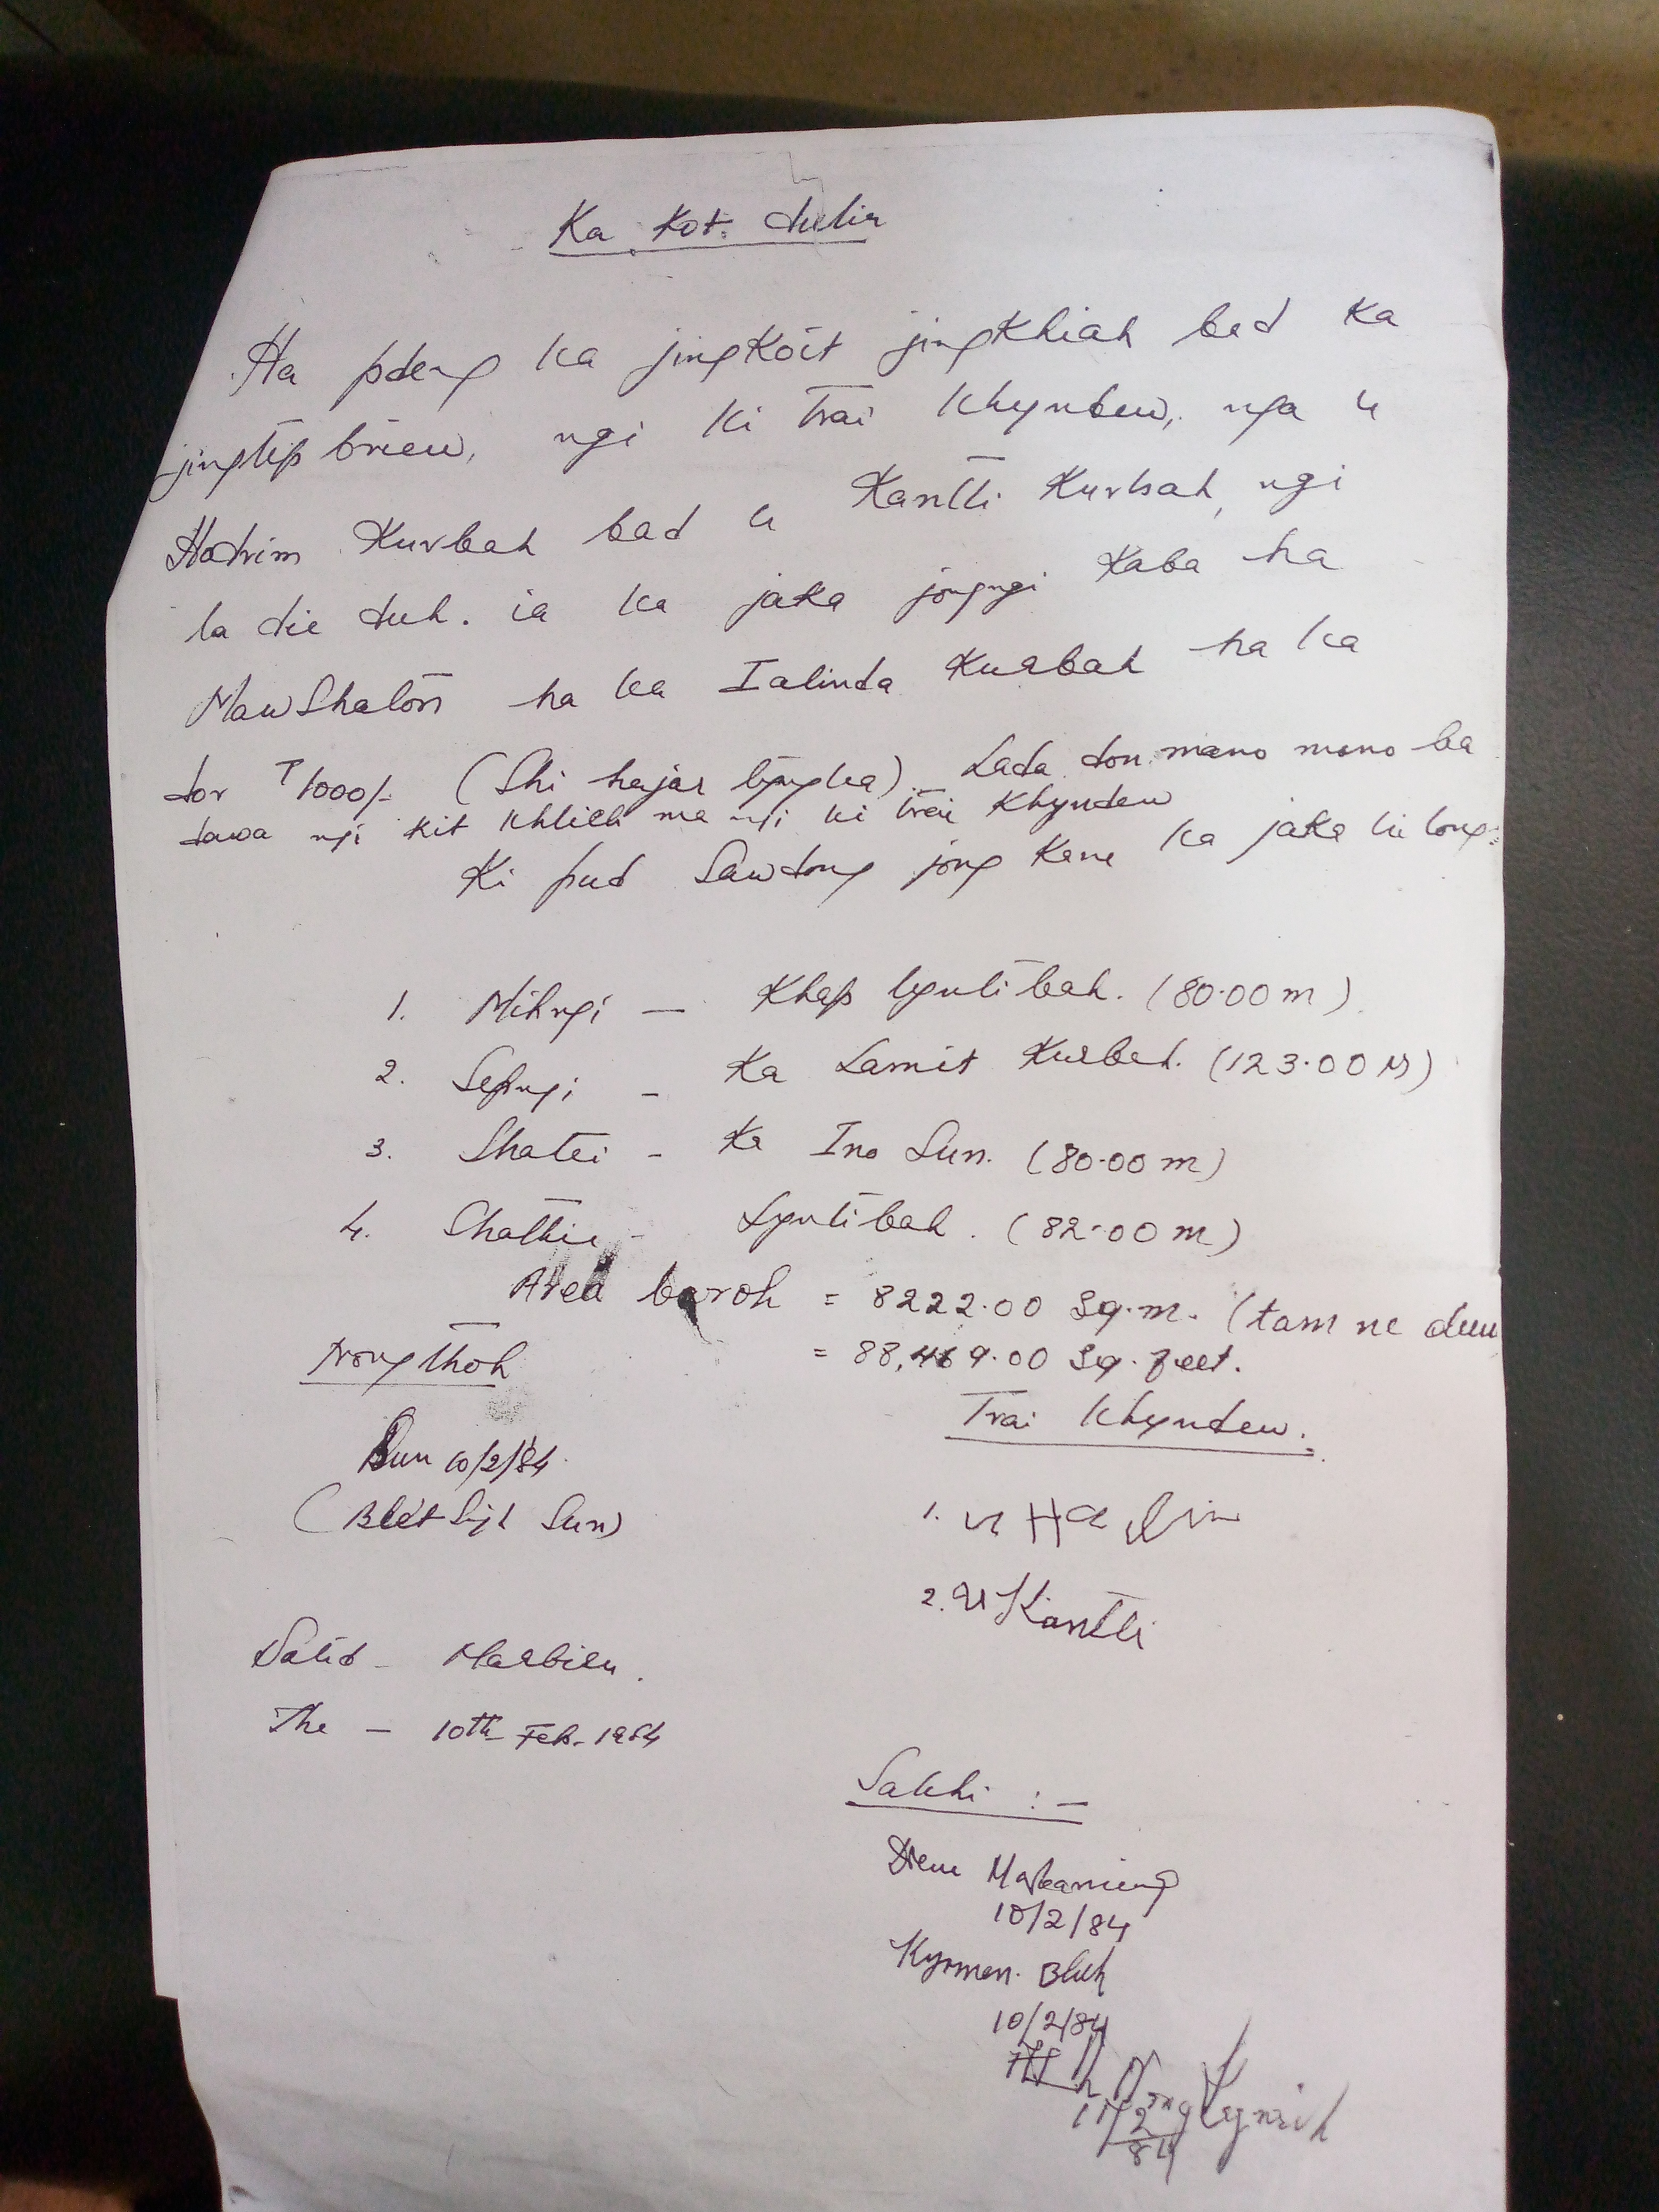 Ka Kot dulir
Ha pdeng ka jingkoit jingkhiah bad ka
jingtip briew, ngi ki trai khyndew, nga u
Hadrim Kurbah bad u Kantli Kurbah, ngi
la die duh. ia ka jaka jongngi kaba ha
Mawshalon ha ka Ialinda Kurbah ha ka
dor ₹1000/- (Shi hajar tyngka) Lada don mano mano ba
dawa ngi kit khlieh ma ngi ki trai khyndew
Ki pud Sawdong jong kane ka jaka ki long:
1. Mihngi — Khap lynti bah. (80.00 m)
2. Sepngi - Ka Lamit Kurbah. (123.00 M)
3. Shatei - Ka Ino Sun. (80.00 m)
4. Shathie - Lynti bah. (82.00 m)
Area baroh = 8222.00 Sq.m. (tam ne duna
= 88,469.00 Sq. feet.
Nongthoh
Trai Khyndew.
Sun 10/2/84
(Blet Sun)
1. U
2. U Kantli
Dated - Marbisu.
The - 10th Feb. 1984
Sakhi :-
Marbaniang
10/2/84
Kyrmen. Blah
10/2/84
11/2/84